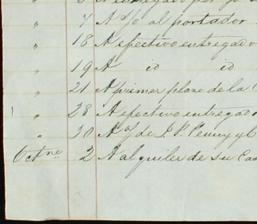 " 7 A o/ al portador
" 18 A efectivo entregado
" 19 A id id
" 21 A primer plazo de la C
" 28 A efectivo entregado
" 30 A o/ de
Octre 2 A alquiler de su Cas